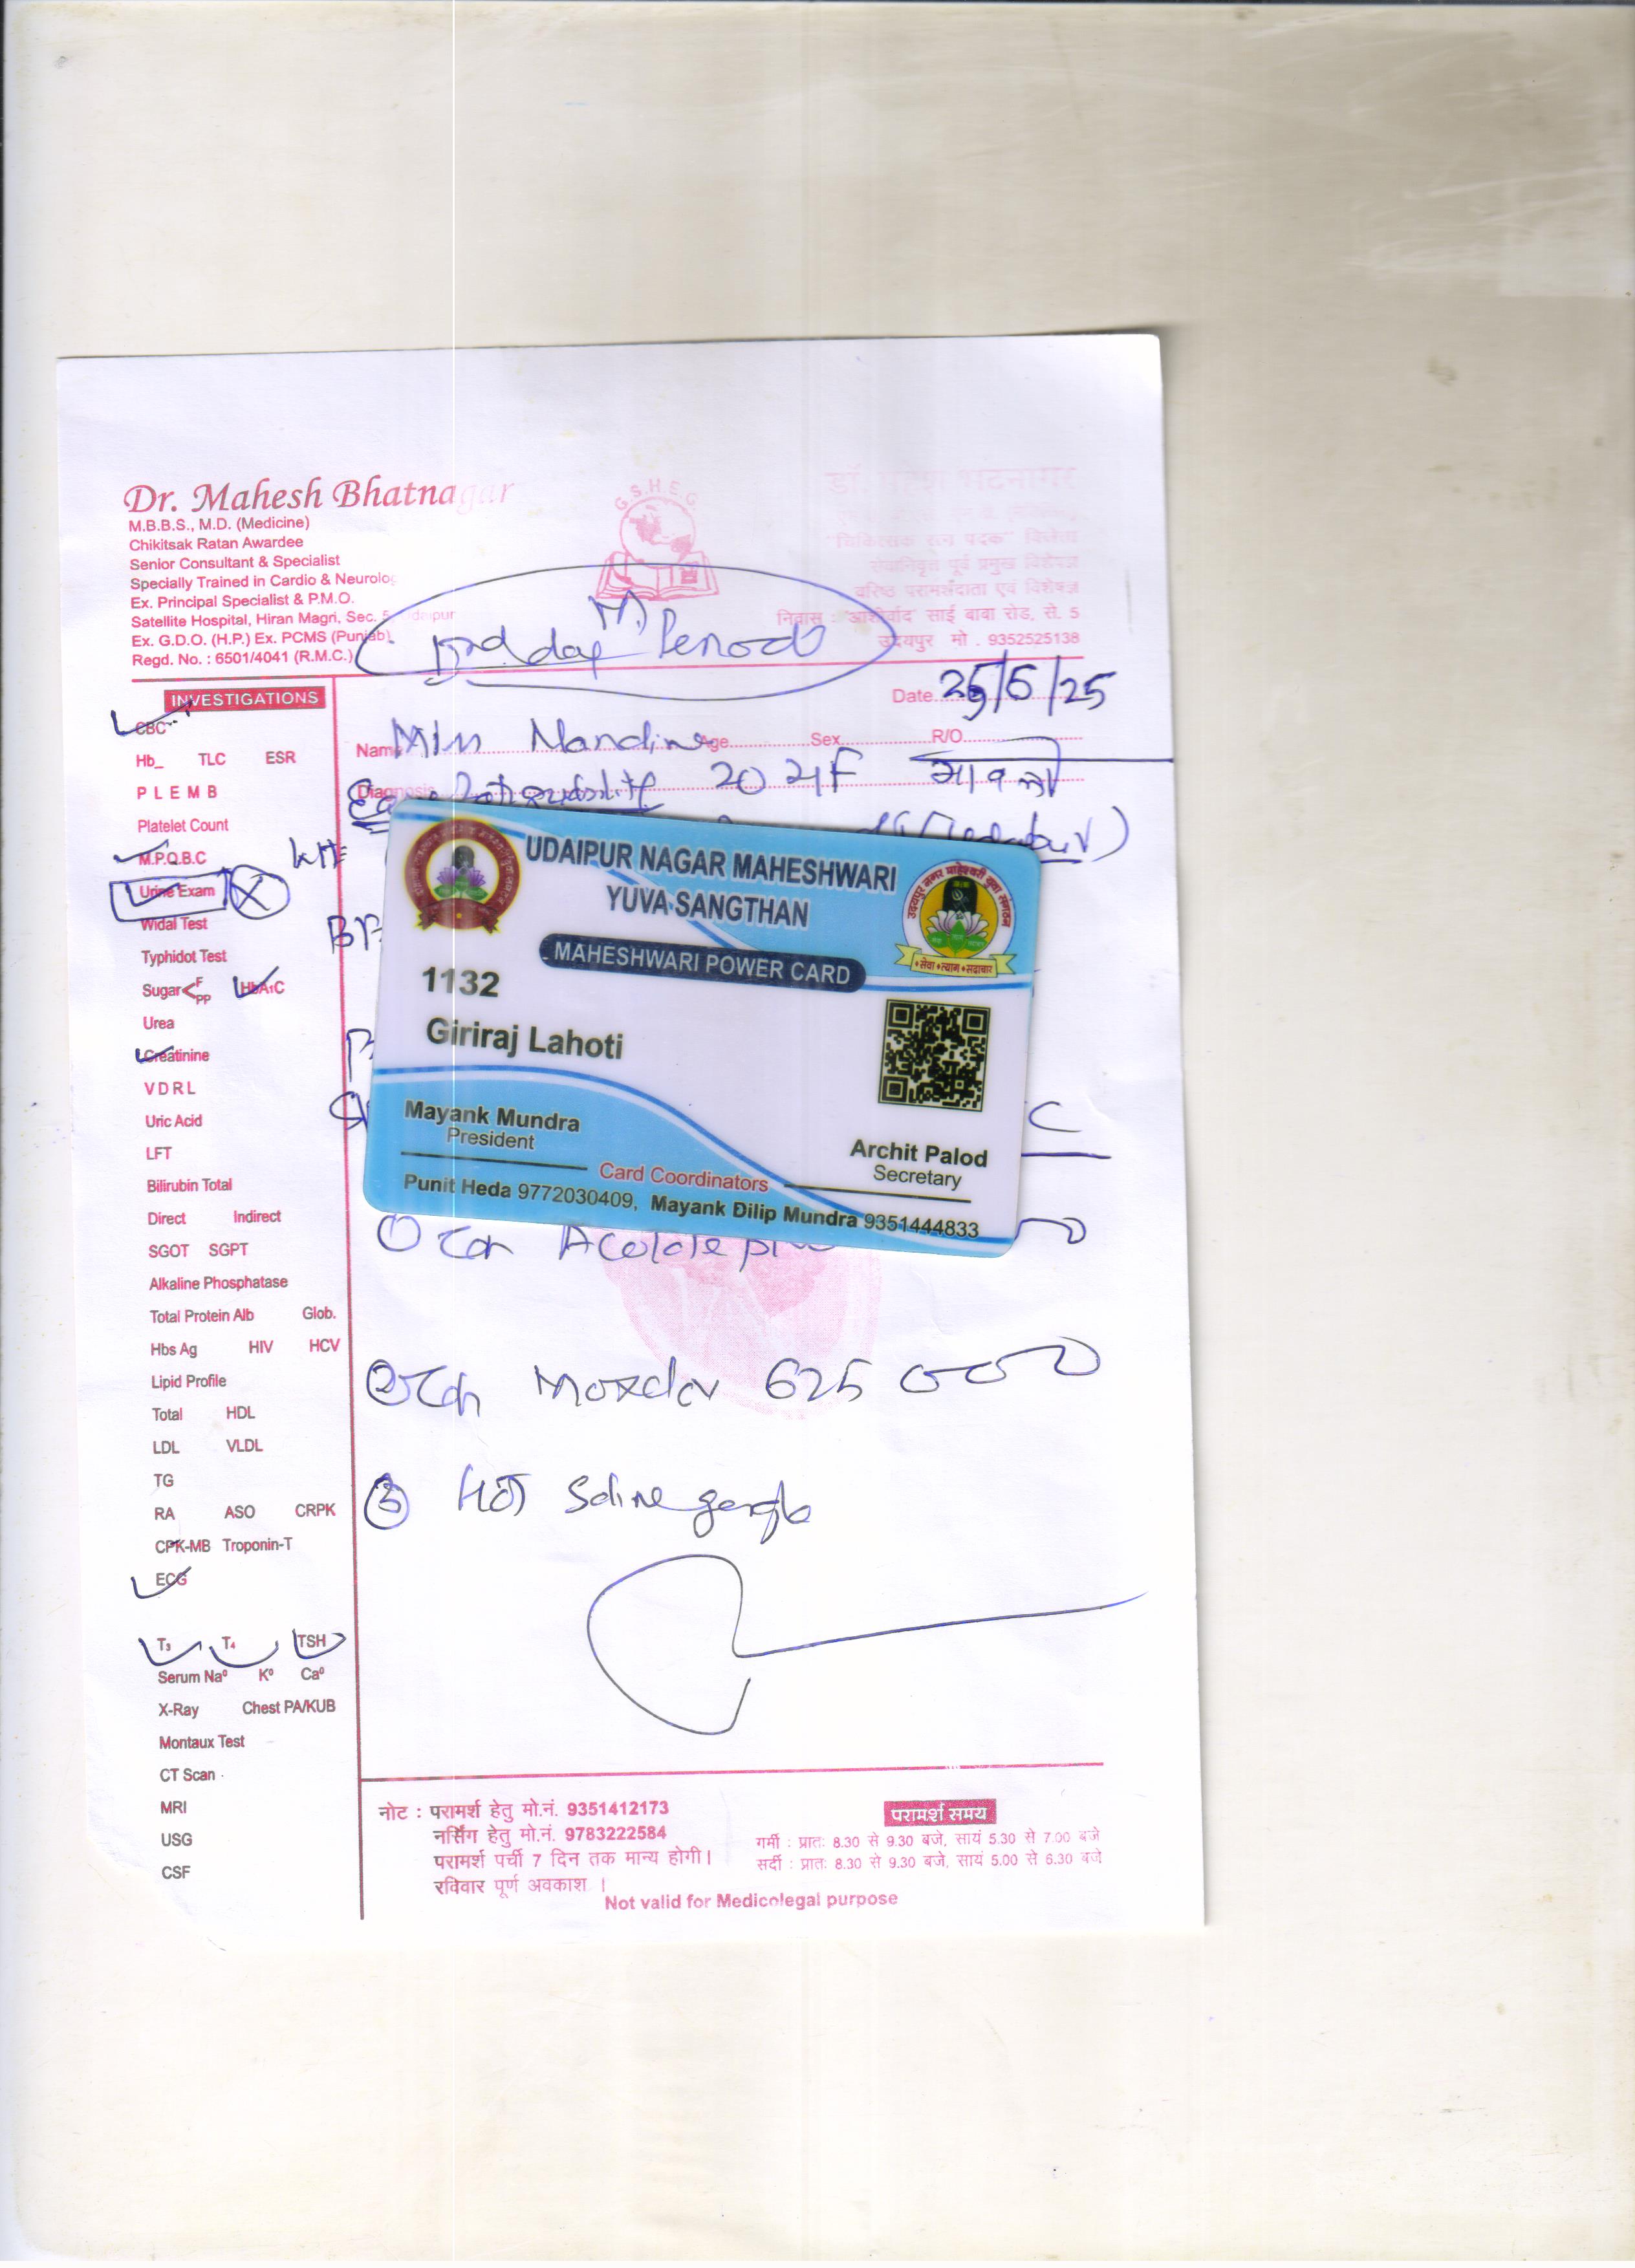 Dr. Mahesh Bhatnagar
M.B.B.S., M.D. (Medicine)
Chikitsak Ratan Awardee
Senior Consultant & Specialist
Specially Trained in Cardio & Neurolog
Ex. Principal Specialist & P.M.O.
Satellite Hospital, Hiran Magri, Sec. 5, Udaipur
Ex. G.D.O. (H.P.) Ex. PCMS (Punjab)
Regd. No. : 6501/4041 (R.M.C.)
G.S.H.E.G.
डॉ. महेश भटनागर
"चिकित्सक रत्न पदक" विजेता
सेवानिवृत पूर्व प्रमुख विशेषज्ञ
वरिष्ठ परामर्शदाता एवं विशेषज्ञ
निवास : आशीर्वाद साई बाबा रोड, से. 5
उदयपुर मो . 9352525138
M. Period
day
Date 25/5/25
Name Age Sex R/O
20 yr F
Diagnosis
INVESTIGATIONS
CBC
Hb_ TLC ESR
P L E M B
Platelet Count
M.P.Q.B.C
Urine Exam
Widal Test
Typhidot Test
Sugar< F PP HbA1C
Urea
Creatinine
V D R L
Uric Acid
LFT
Bilirubin Total
Direct Indirect
SGOT SGPT
Alkaline Phosphatase
Total Protein Alb Glob.
Hbs Ag HIV HCV
Lipid Profile
Total HDL
LDL VLDL
TG
RA ASO CRPK
CPK-MB Troponin-T
ECG
T3 T4 TSH
Serum Na⁰ K⁰ Ca⁰
X-Ray Chest PA/KUB
Montaux Test
CT Scan
MRI
USG
CSF
UDAIPUR NAGAR MAHESHWARI
YUVA SANGTHAN
MAHESHWARI POWER CARD
उदयपुर नगर माहेश्वरी युवा संगठन
सेवा त्याग सदाचार
1132
Giriraj Lahoti
Mayank Mundra
President
Archit Palod
Secretary
Card Coordinators
Punit Heda 9772030409, Mayank Dilip Mundra 9351444833
①
② 625
③ Hot Saline gargle
नोट : परामर्श हेतु मो.नं. 9351412173
नर्सिंग हेतु मो.नं. 9783222584
परामर्श पर्ची 7 दिन तक मान्य होगी।
रविवार पूर्ण अवकाश ।
परामर्श समय
गर्मी : प्रातः 8.30 से 9.30 बजे, सायं 5.30 से 7.00 बजे
सर्दी : प्रातः 8.30 से 9.30 बजे, सायं 5.00 से 6.30 बजे
Not valid for Medicolegal purpose